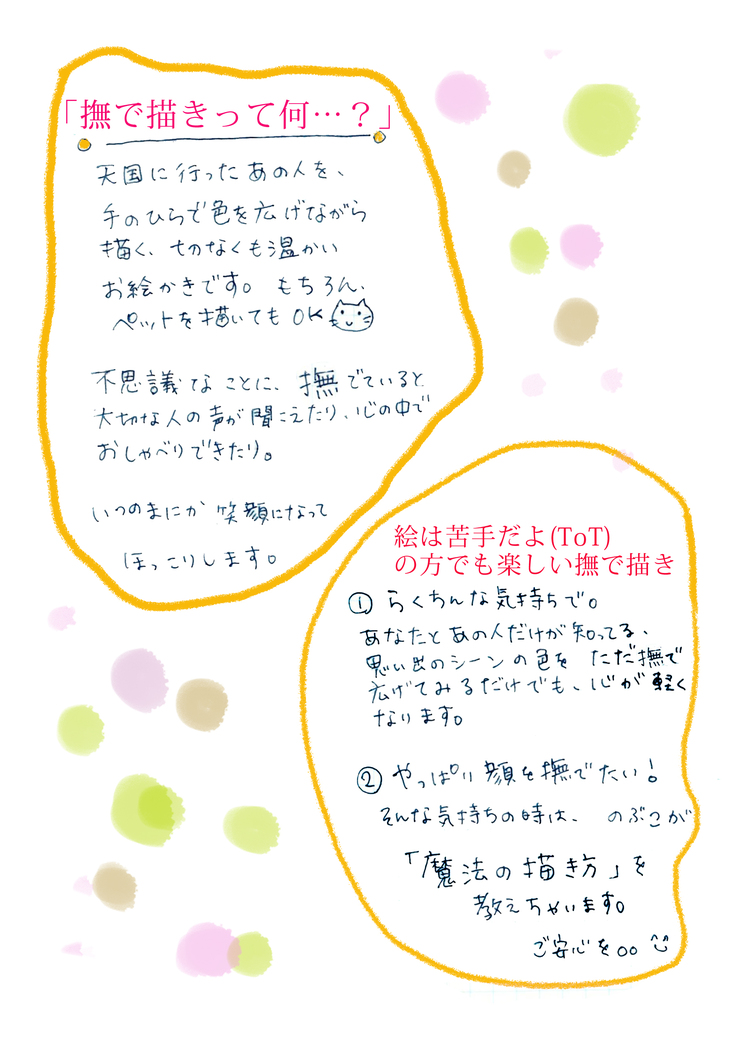 「撫で描きって何…？」
天国に行ったあの人を、
手のひらで色を広げながら
描く、切なくも温かい
お絵かきです。もちろん、
ペットを描いてもOK
不思議なことに、撫でていると
大切な人の声が聞こえたり、心の中で
おしゃべりできたり。
いつのまにか笑顔になって
ほっこりします。
絵は苦手だよ(ToT)
の方でも楽しい撫で描き
① らくちんな気持ちで。
あなたとあの人だけが知ってる、
思い出のシーンの色を ただ撫で
広げてみるだけでも、心が軽く
なります。
② やっぱり顔を撫でたい！
そんな気持ちの時は、 のぶこが
「魔法の描き方」を
教えちゃいます。
ご安心を○○ ^^